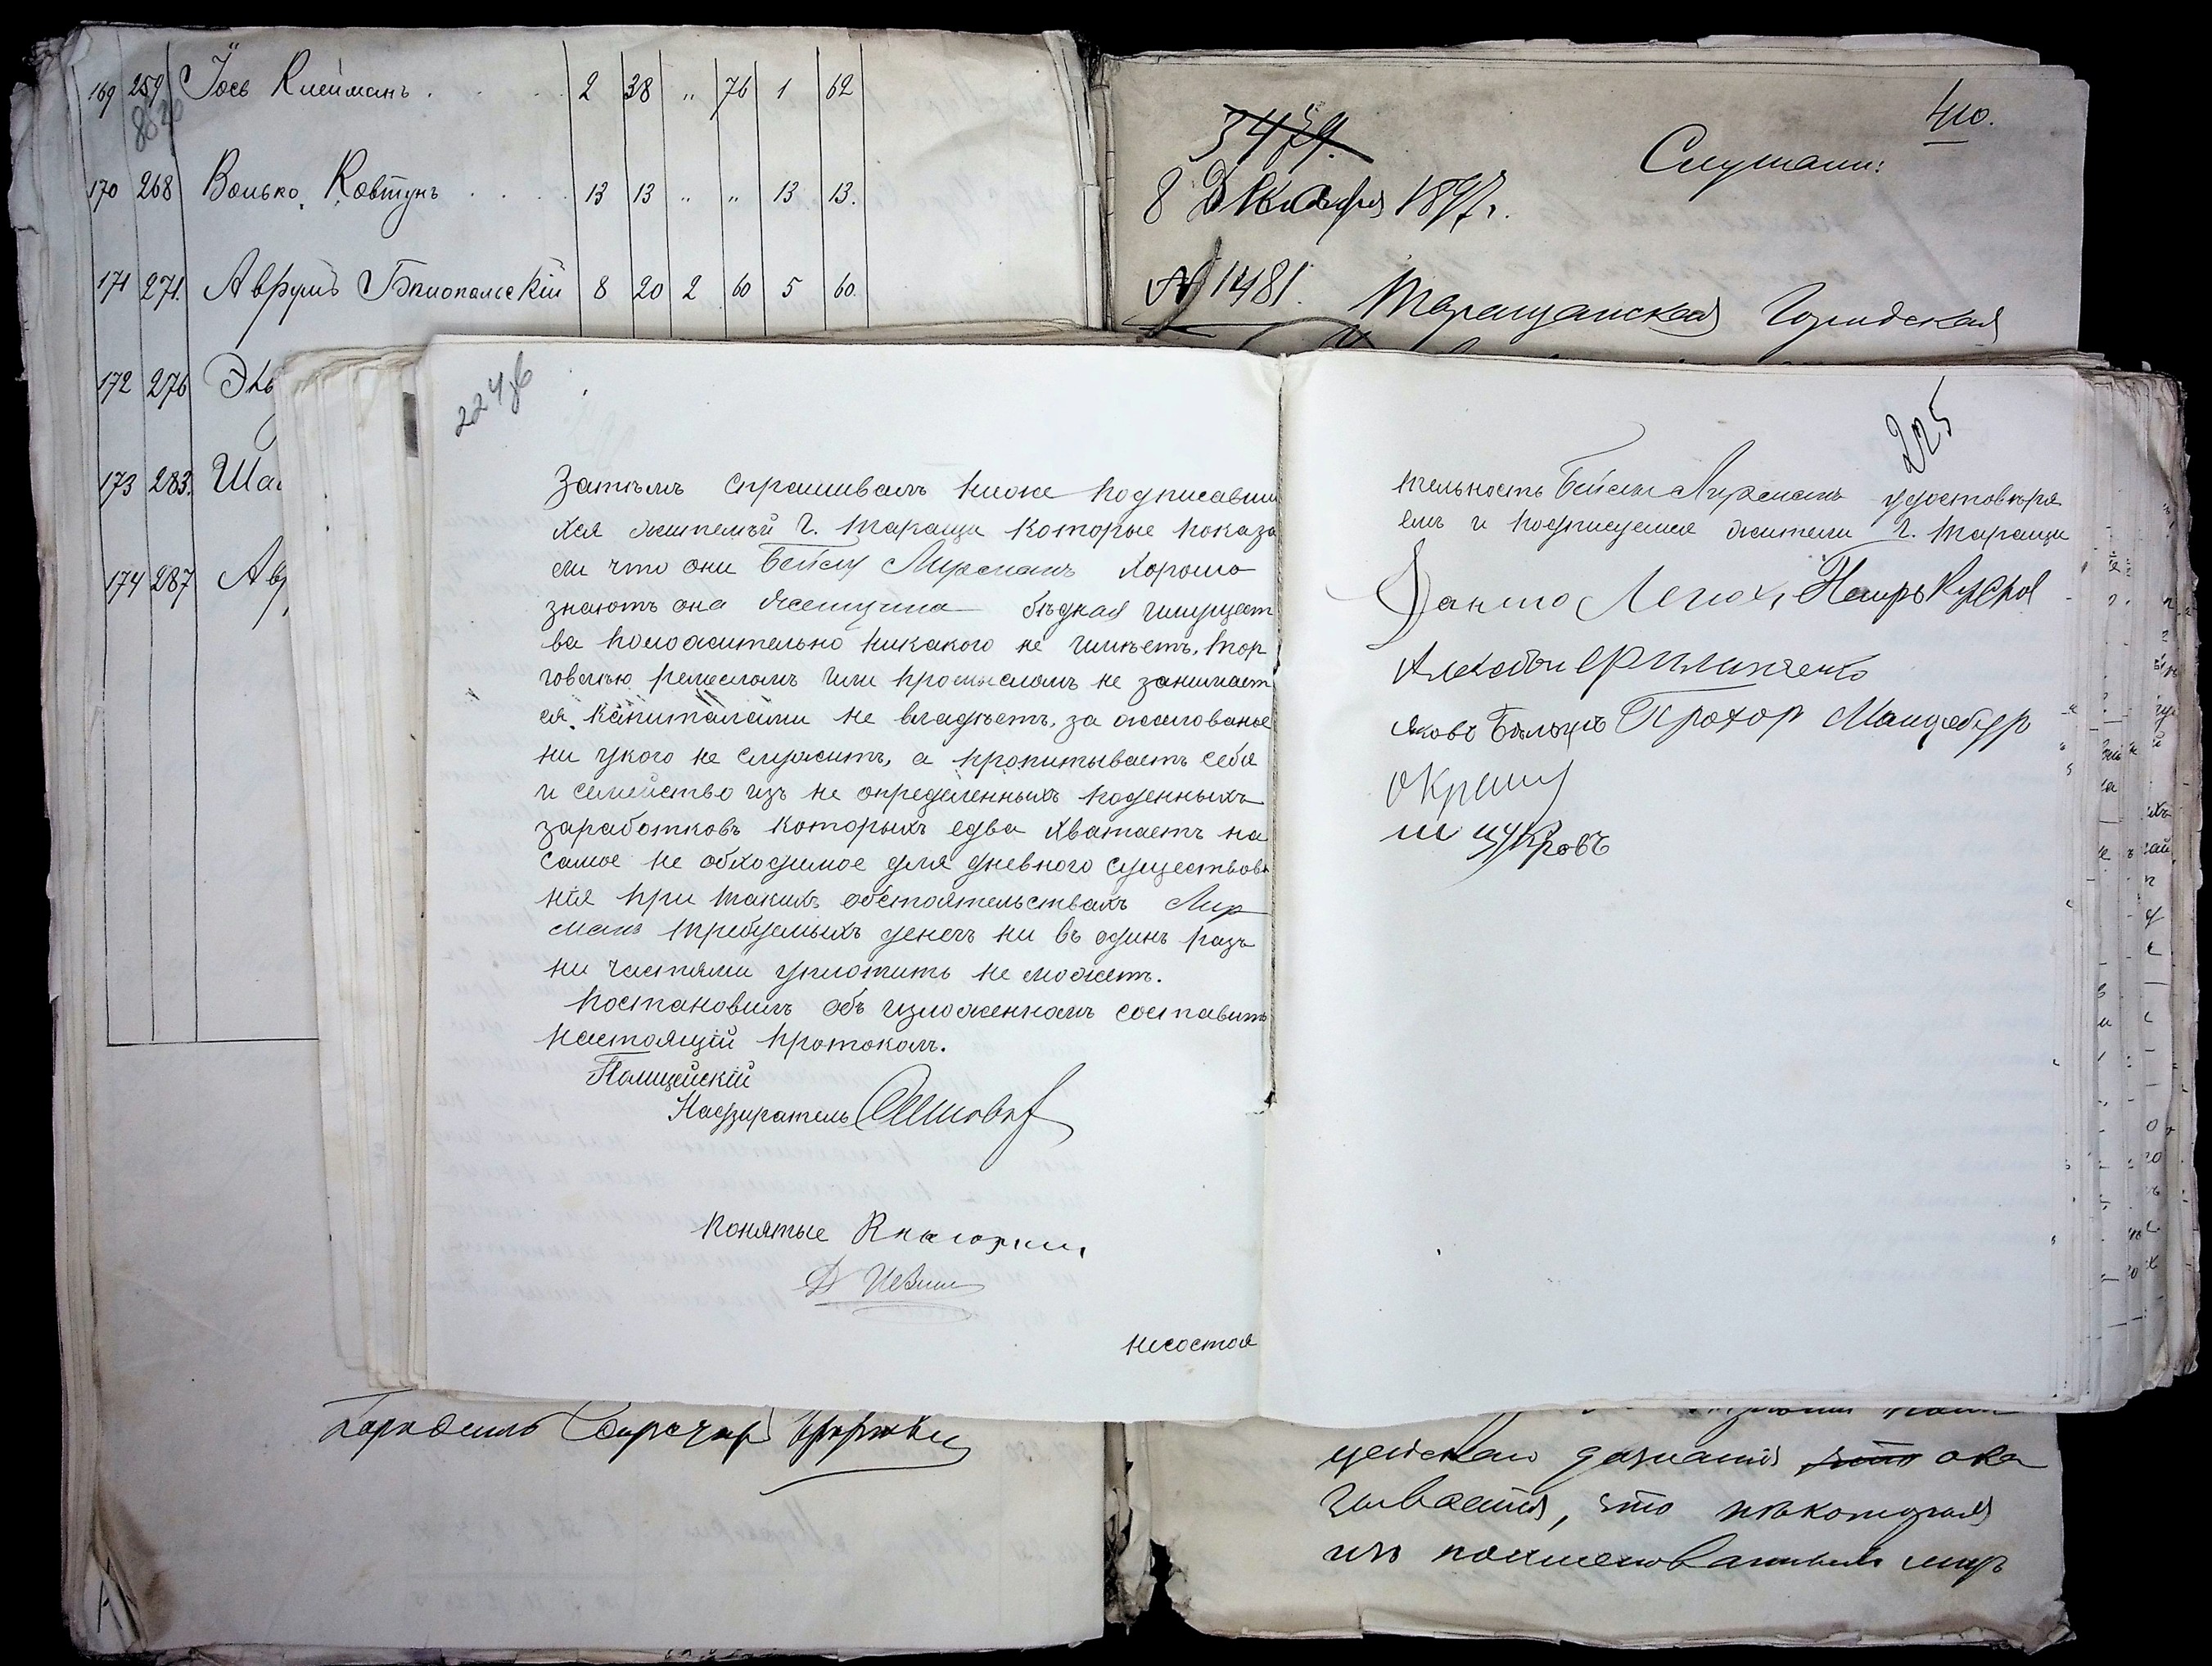 169 259 Іось Клейманъ . . . 2 38 „ 76 1 62
170 268 Волько Ковтунъ . . . 13 13 „ „ 13 13.
171 271. Аврумъ Бѣлопольскій 8 20 2 60 5 60.
172 276
173 283.
174 287
410.
Слушали:
8 Декабря 1897 г.
№ 1481.
Таращанская Городская
224 об
Затѣмъ спрашивалъ ниже подписавши
хся жителей г. Таращи которые показа
ли что они Бейлу Лирманъ хорошо
знаютъ она женщина бѣдная имущест
ва положительно никакого не имѣетъ, тор
говлею ремесломъ или промысломъ не занимает
ся, капиталами не владѣетъ, за жалованье
ни укого не служитъ, а пропитываетъ себя
и семейство изъ не определенныхъ поденныхъ
заработковъ которыхъ едва хватаетъ на
самое не обходимое для дневного существова
нія при такихъ обстоятельствахъ Лир
манъ требуемыхъ денегъ ни въ одинъ разъ
ни частями уплотить не можетъ.
Постановилъ объ изложенномъ составить
настоящій протоколъ.
Полицейскій
Надзиратель
Понятые
несостоя
225
тельность Бейлы Лирманъ удостовѣря
емъ и подписуемся жители г. Таращи
Прохор
цейскаго дознанія что ока
зывается, что нѣкоторыя
изъ поименованныхъ лицъ